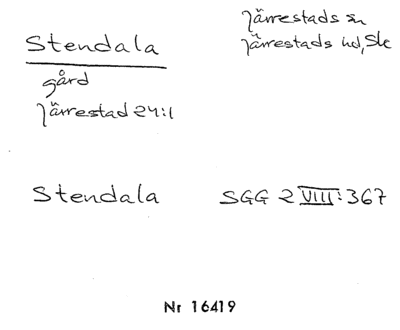 Stendala
Järrestads sn
Järrestads hd, Sk
gård
Järrestad 24:1
Stendala
SGG 2 VIII: 367
Nr 16419